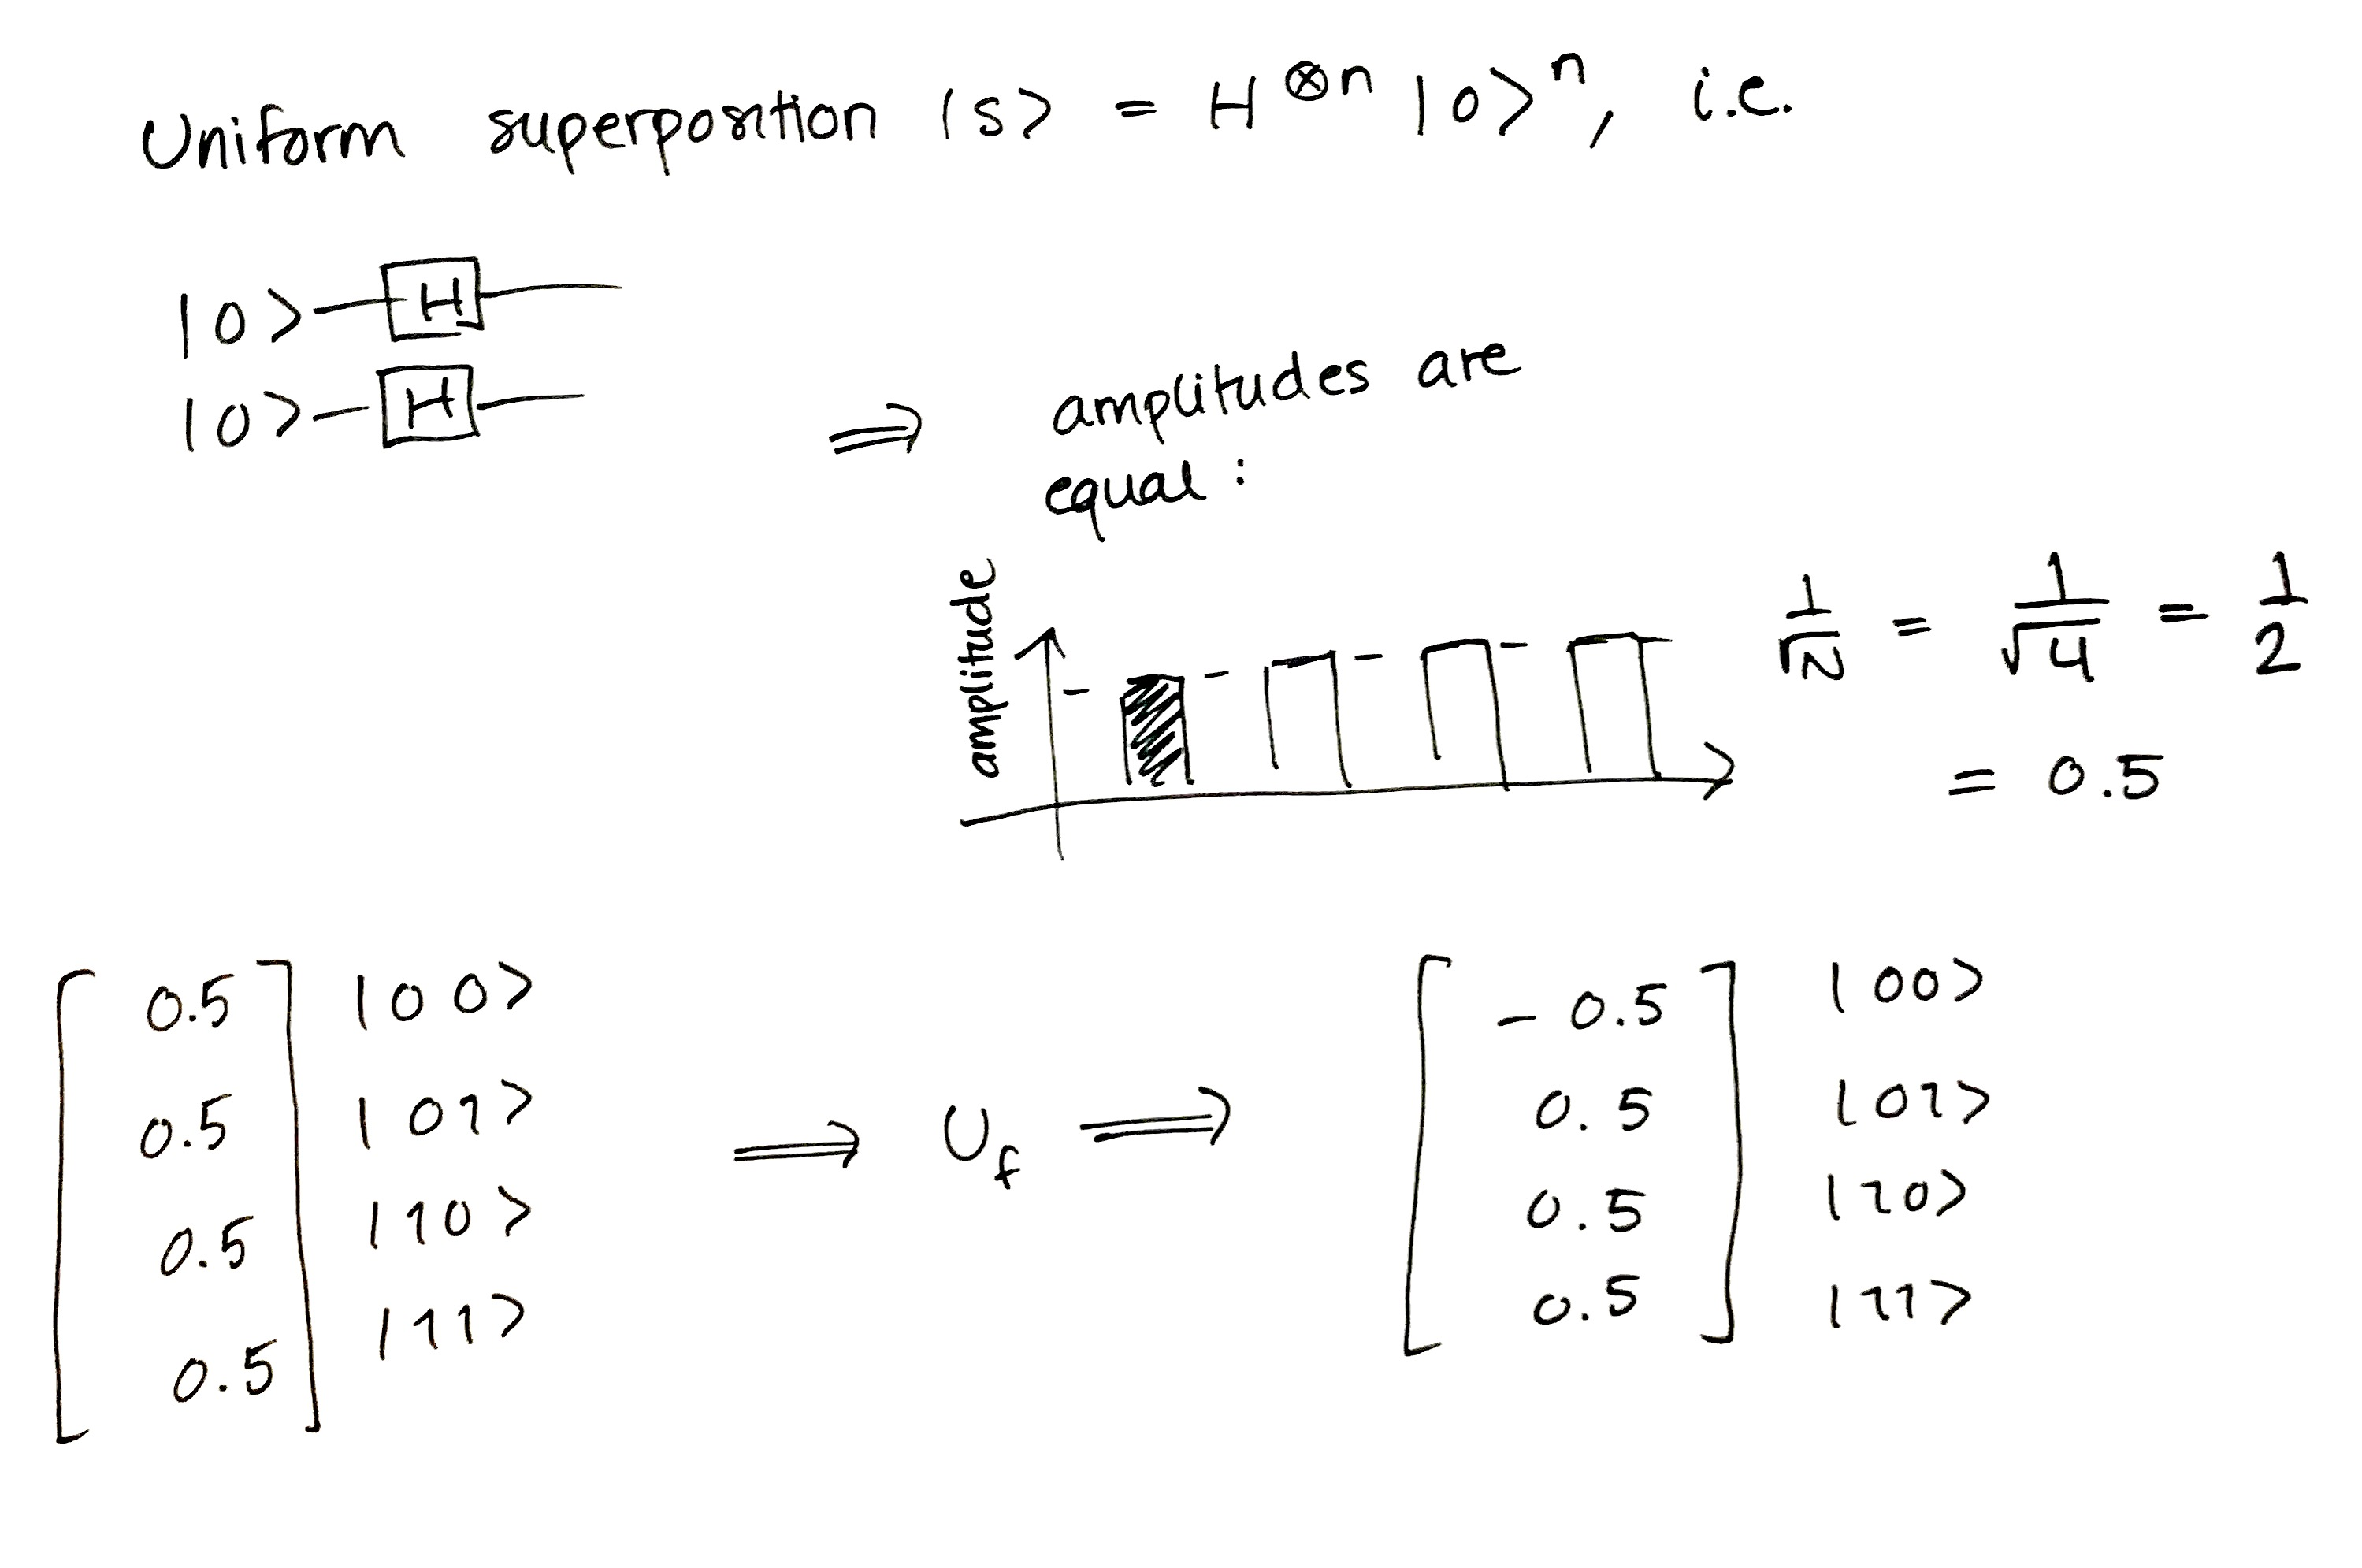 Uniform superposition |s> = H^⊗n |0>^n, i.e.
|0> H
|0> H
⟹ amplitudes are
equal:
amplitude
1/√N = 1/√4 = 1/2
= 0.5
[ 0.5 ] |00> [ -0.5 ] |00>
[ 0.5 ] |01> ⟹ U_f ⟹ [ 0.5 ] |01>
[ 0.5 ] |10> [ 0.5 ] |10>
[ 0.5 ] |11> [ 0.5 ] |11>